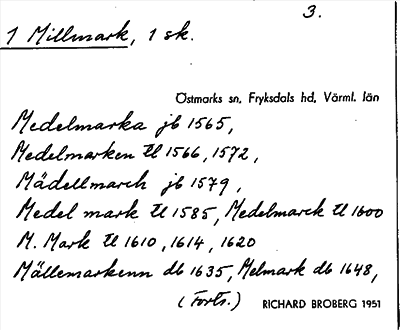 3.
1 Millmark, 1 sk.
Östmarks sn, Fryksdals hd, Värml. län
Medelmarka jb 1565,
Medelmarken tl 1566, 1572,
Mädellmarch jb 1579,
Medel mark tl 1585, Medelmarck tl 1600
M. Mark tl 1610, 1614, 1620
Mällemarkenn db 1635, Melmark db 1648,
(Forts.) RICHARD BROBERG 1951